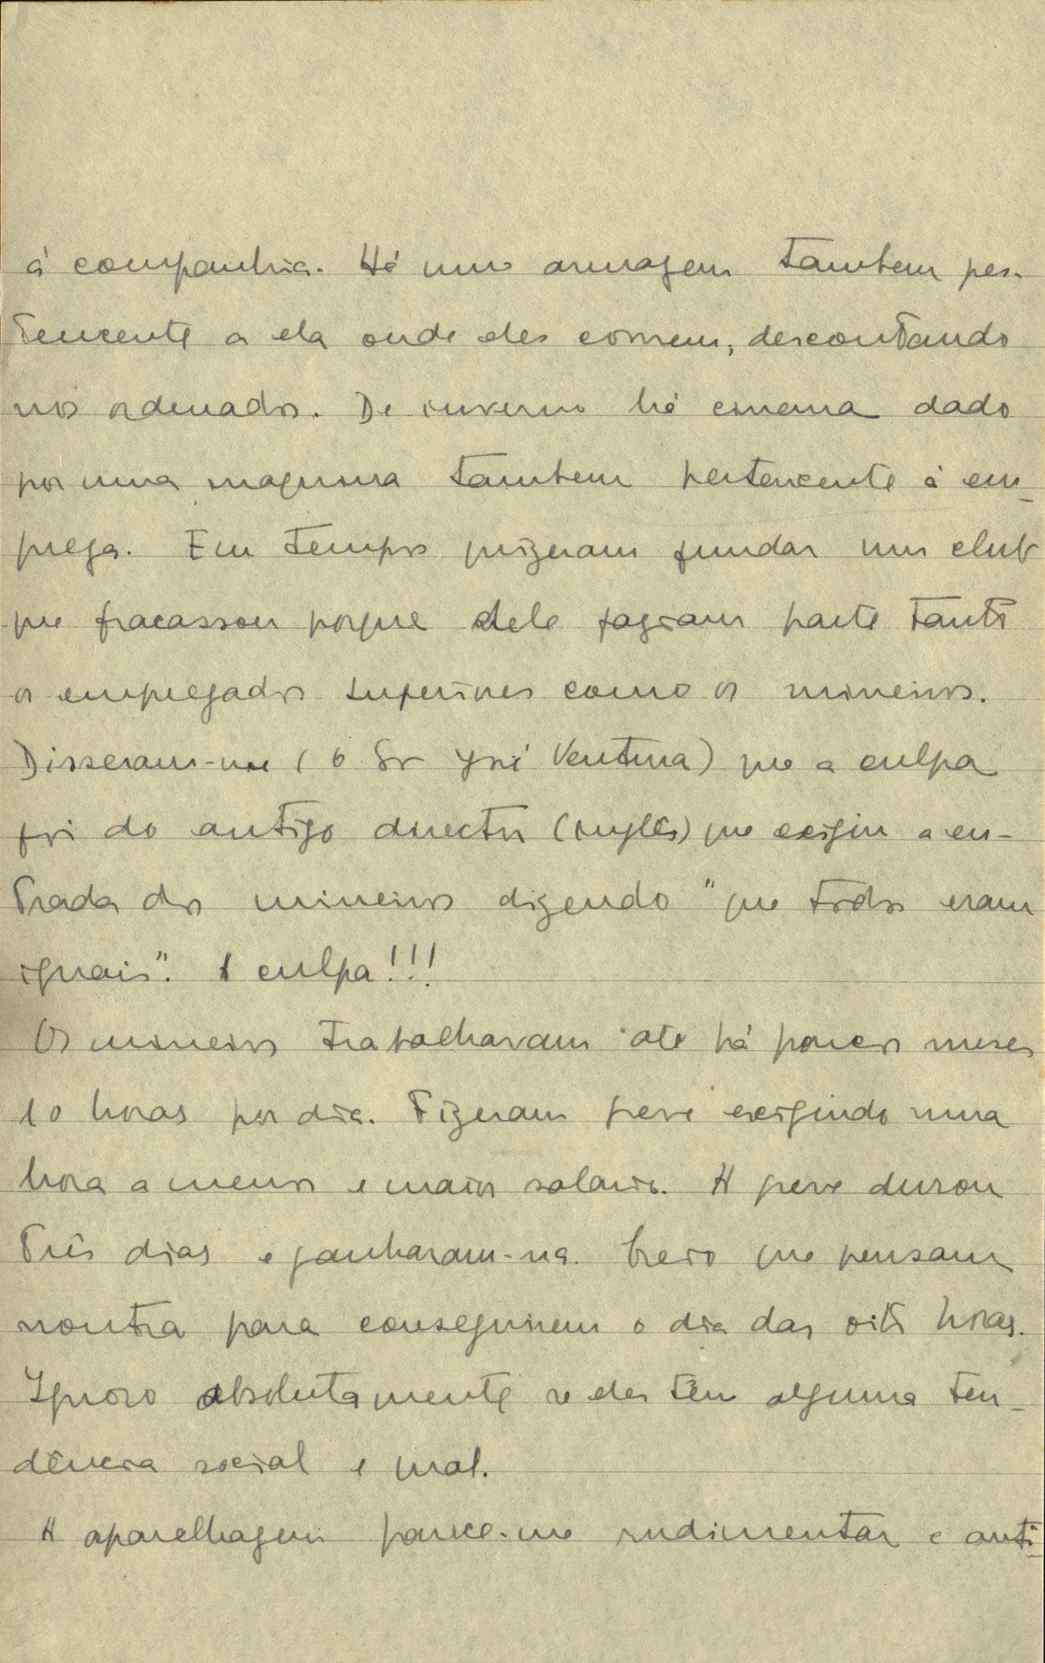 á companhia. Há um armagem tambem per-
tencente a ela onde eles comem, descontando
nos ordenados. De inverno há cinema dado
por uma maquina tambem pertencente á em-
preza. Em tempos quizeram fundar um club
que fracassou porque dele faziam parte tanto
os empregados superiores como os mineiros.
Disseram-me (o Sr José Ventura) que a culpa
foi do antigo director (inglês) que exigiu a en-
trada dos mineiros dizendo "que todos eram
iguais". A culpa!!!
Os mineiros trabalhavam até há poucos meses
10 horas por dia. Fizeram greve exigindo uma
hora a menos e maior salario. A greve durou
três dias e ganharam-na. Creio que pensam
noutra para conseguirem o dia das oito horas.
Ignoro absolutamente se eles têm alguma ten-
dência social e qual.
A aparelhagem parece-me rudimentar e anti-